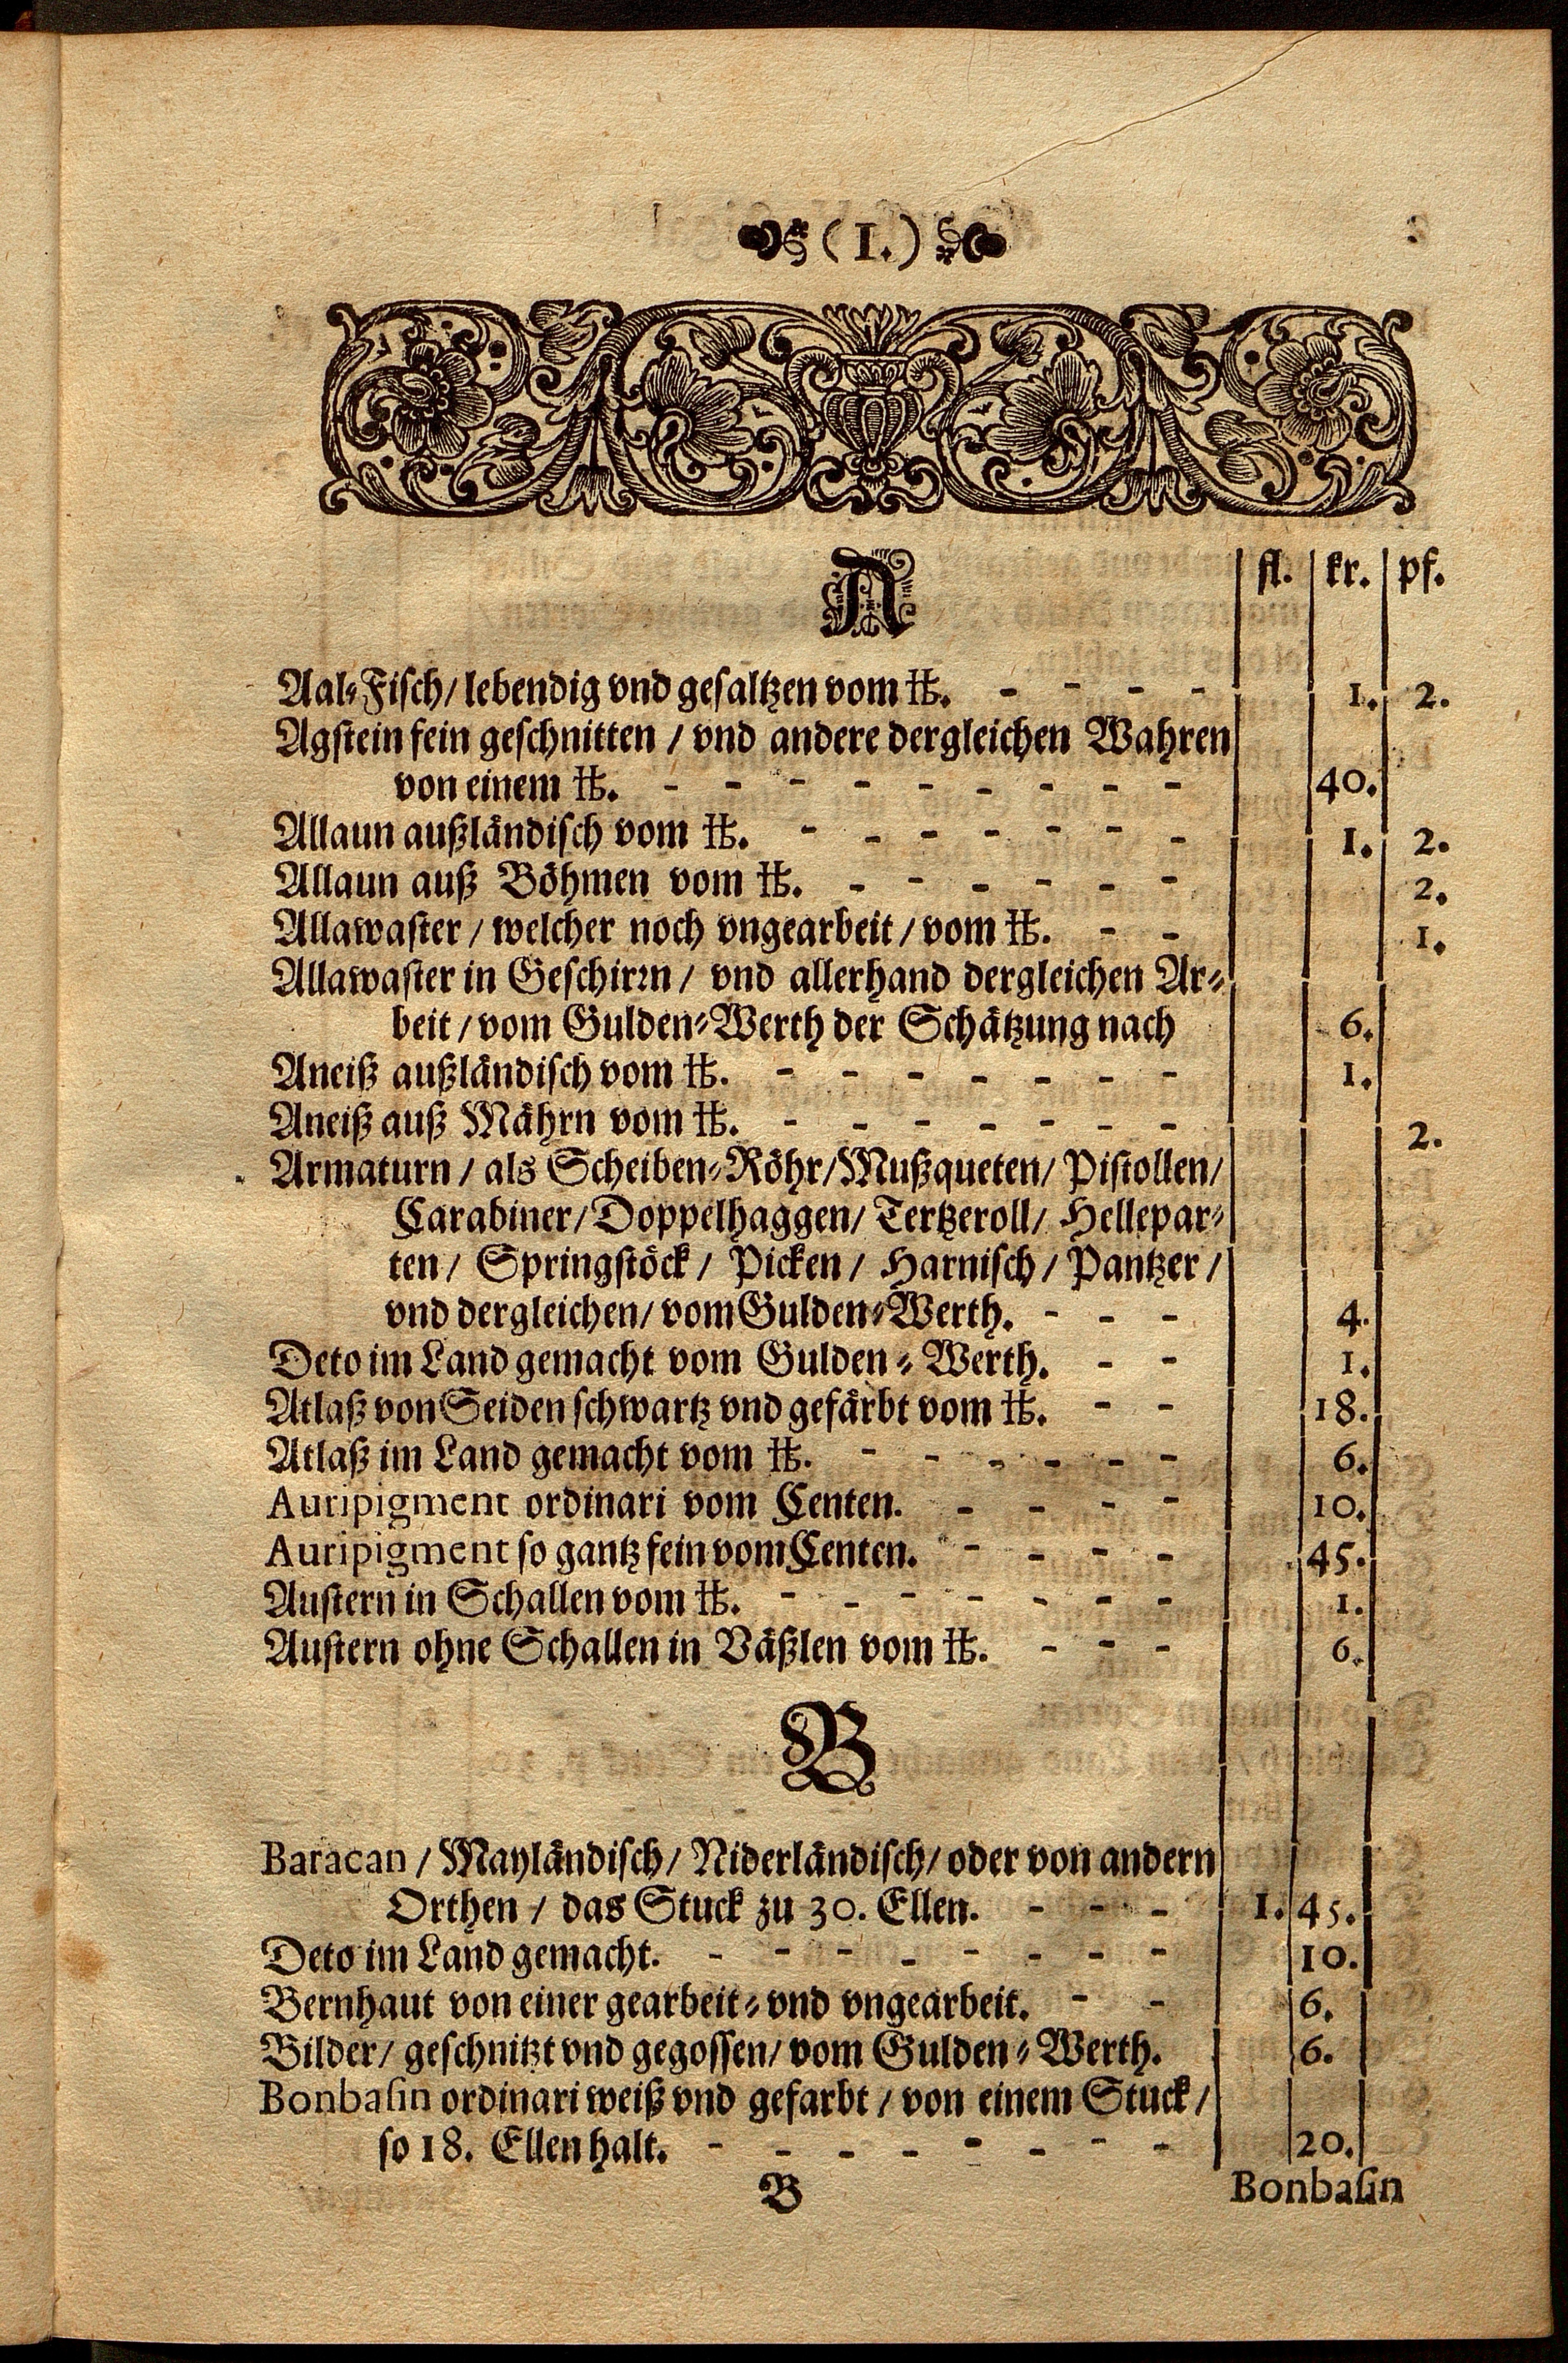 (I.)
A
fl. kr. pf.
Aal-Fisch/ lebendig vnd gesaltzen vom ℔. - - - - 1. 2.
Agstein fein geschnitten / vnd andere dergleichen Wahren
von einem ℔. - - - - - - - - - 40.
Allaun außländisch vom ℔. - - - - - - - 1. 2.
Allaun auß Böhmen vom ℔. - - - - - - 2.
Allawaster / welcher noch vngearbeit / vom ℔. - - 1.
Allawaster in Geschirꝛn / vnd allerhand dergleichen Ar-
beit / vom Gulden-Werth der Schätzung nach 6.
Aneiß außländisch vom ℔. - - - - - - - 1.
Aneiß auß Mährn vom ℔. - - - - - - - 2.
Armaturn / als Scheiben-Röhr/ Mußqueten/ Pistollen/
Carabiner/ Doppelhaggen/ Tertzeroll/ Hellepar-
ten/ Springstöck / Picken / Harnisch / Pantzer /
vnd dergleichen/ vom Gulden-Werth. - - - 4.
Deto im Land gemacht vom Gulden-Werth. - - 1.
Atlaß von Seiden schwartz vnd gefärbt vom ℔. - - 18.
Atlaß im Land gemacht vom ℔. - - - - - - 6.
Auripigment ordinari vom Centen. - - - - 10.
Auripigment so gantz fein vom Centen. - - - - 45.
Austern in Schallen vom ℔. - - - - - - - 1.
Austern ohne Schallen in Väßlen vom ℔. - - - 6.
B
Baracan / Mayländisch/ Niderländisch/ oder von andern
Orthen / das Stuck zu 30. Ellen. - - - 1. 45.
Deto im Land gemacht. - - - - - - - - 10.
Bernhaut von einer gearbeit- vnd vngearbeit. - - 6.
Bilder/ geschnitzt vnd gegossen/ vom Gulden-Werth. 6.
Bonbasin ordinari weiß vnd gefarbt / von einem Stuck /
so 18. Ellen halt. - - - - - - - - 20.
B Bonbasin